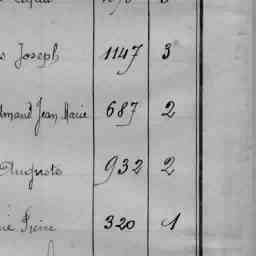 Joseph 1147 3
Jean Marie 687 2
Auguste 932 2
320 1